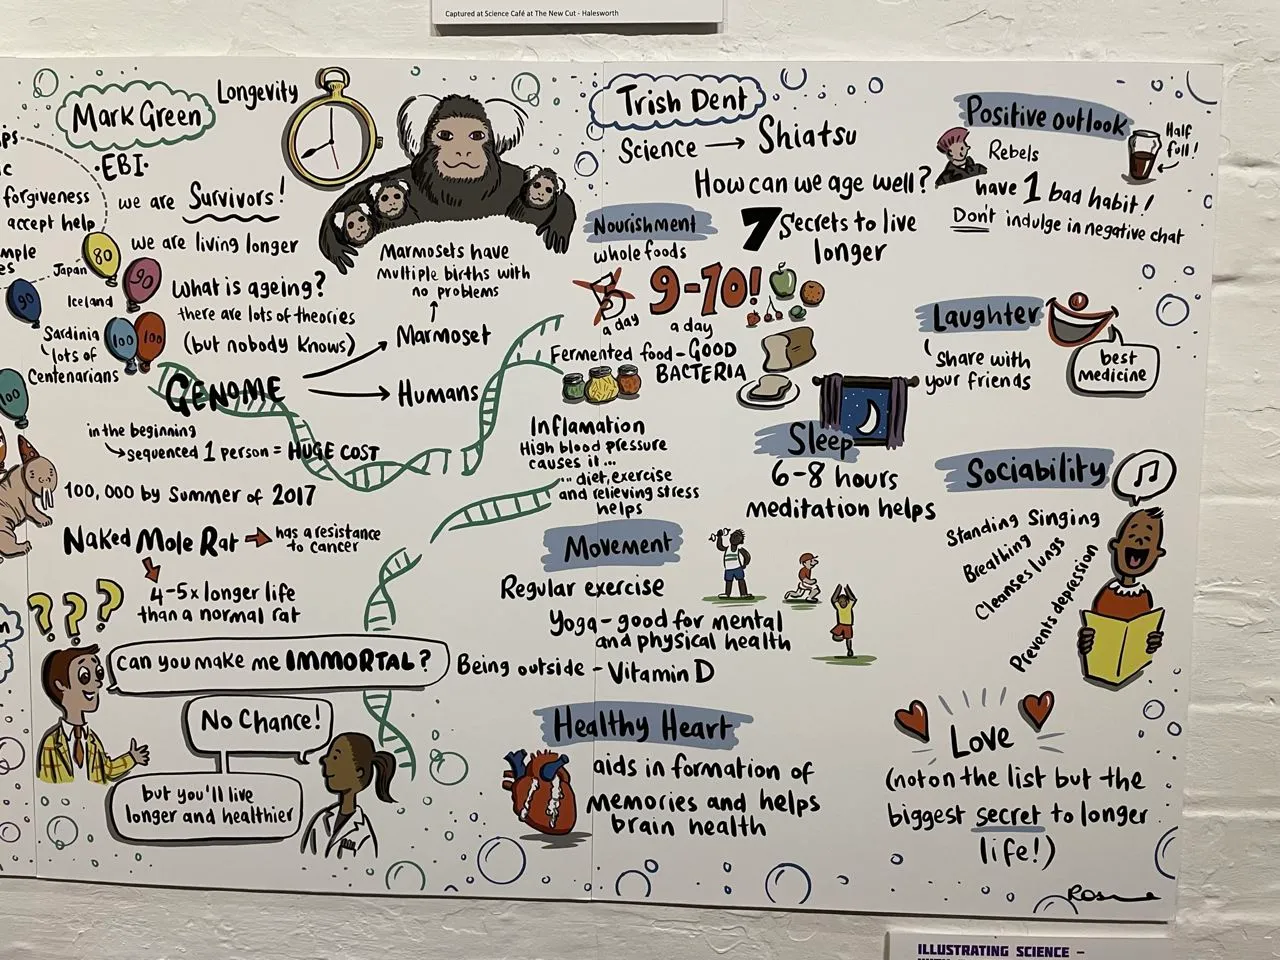 Captured at Science Café at The New Cut - Halesworth
forgiveness
accept help
Japan
80
90
Iceland
90
Sardinia
lots of
Centenarians
100
100
100
Mark Green
·EBI·
Longevity
we are Survivors!
we are living longer
What is ageing?
there are lots of theories
(but nobody knows)
Marmosets have
multiple births with
no problems
Marmoset
GENOME
Humans
in the beginning
sequenced 1 person = HUGE COST
100,000 by Summer of 2017
Naked Mole Rat
has a resistance
to cancer
4-5x longer life
than a normal rat
? ? ?
Can you make me IMMORTAL?
No Chance!
but you'll live
longer and healthier
Trish Dent
Science → Shiatsu
How can we age well?
7 Secrets to live
longer
Nourishment
whole foods
5
a day
9-10!
a day
Fermented food - GOOD
BACTERIA
Inflamation
High blood pressure
causes it...
...diet, exercise
and relieving stress
helps
Sleep
6-8 hours
meditation helps
Movement
Regular exercise
Yoga - good for mental
and physical health
Being outside - Vitamin D
Healthy Heart
aids in formation of
memories and helps
brain health
Positive outlook
Half
full!
Rebels
have 1 bad habit!
Don't indulge in negative chat
Laughter
Share with
your friends
best
medicine
Sociability
Standing Singing
Breathing
Cleanses lungs
Prevents depression
Love
(not on the list but the
biggest secret to longer
life!)
ILLUSTRATING SCIENCE –